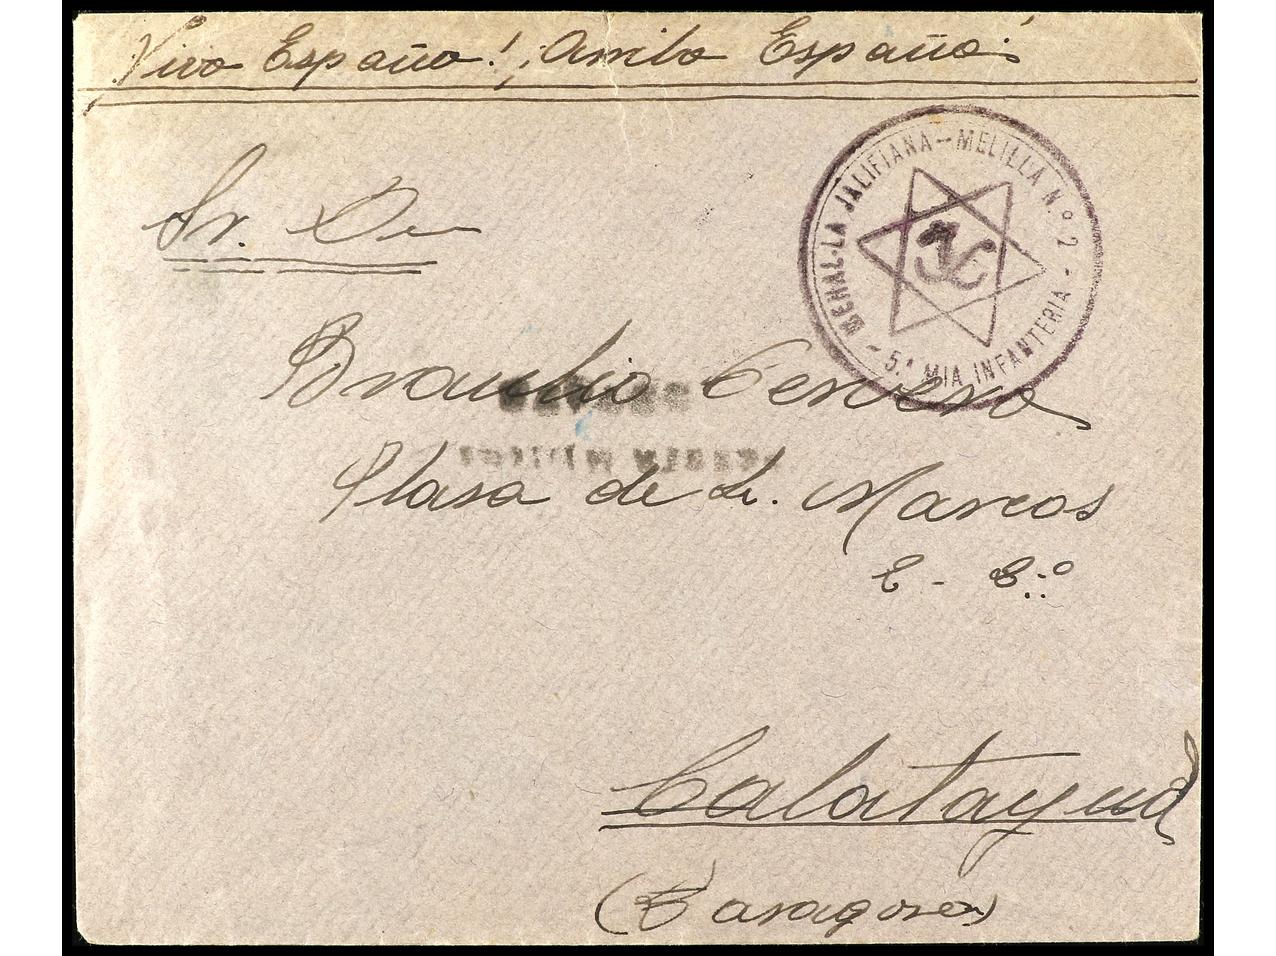 Viva España! ¡Arriba España!
MEHAL-LA JALIFIANA - MELILLA N.º 2
- 5.ª MIA INFANTERIA -
Sr. Dn
Braulio Cervero
Plasa de S. Marcos
Calatayud
(Zaragoza)